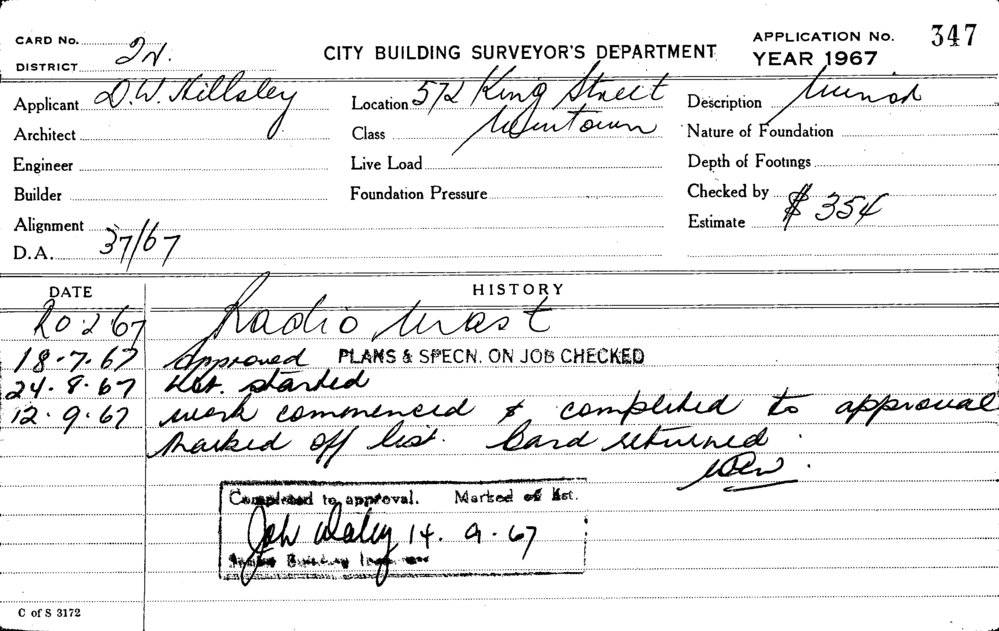 CARD No. APPLICATION No. 347
DISTRICT 2N. CITY BUILDING SURVEYOR'S DEPARTMENT YEAR 1967
Applicant D.W. Hillsley Location 572 King Street Description Minor
Architect Class Newtown Nature of Foundation
Engineer Live Load Depth of Footings
Builder Foundation Pressure Checked by
Alignment Estimate $ 354
D.A. 37/67
DATE HISTORY
20.2.67 Radio Mast
18.7.67 Approved PLANS & SPECN. ON JOB CHECKED
24.8.67 Not started
12.9.67 work commenced & completed to approval
Marked off list. Card returned.
Completed to approval. Marked off list.
Joh Daley 14.9.67
Building Inspector
C of S 3172